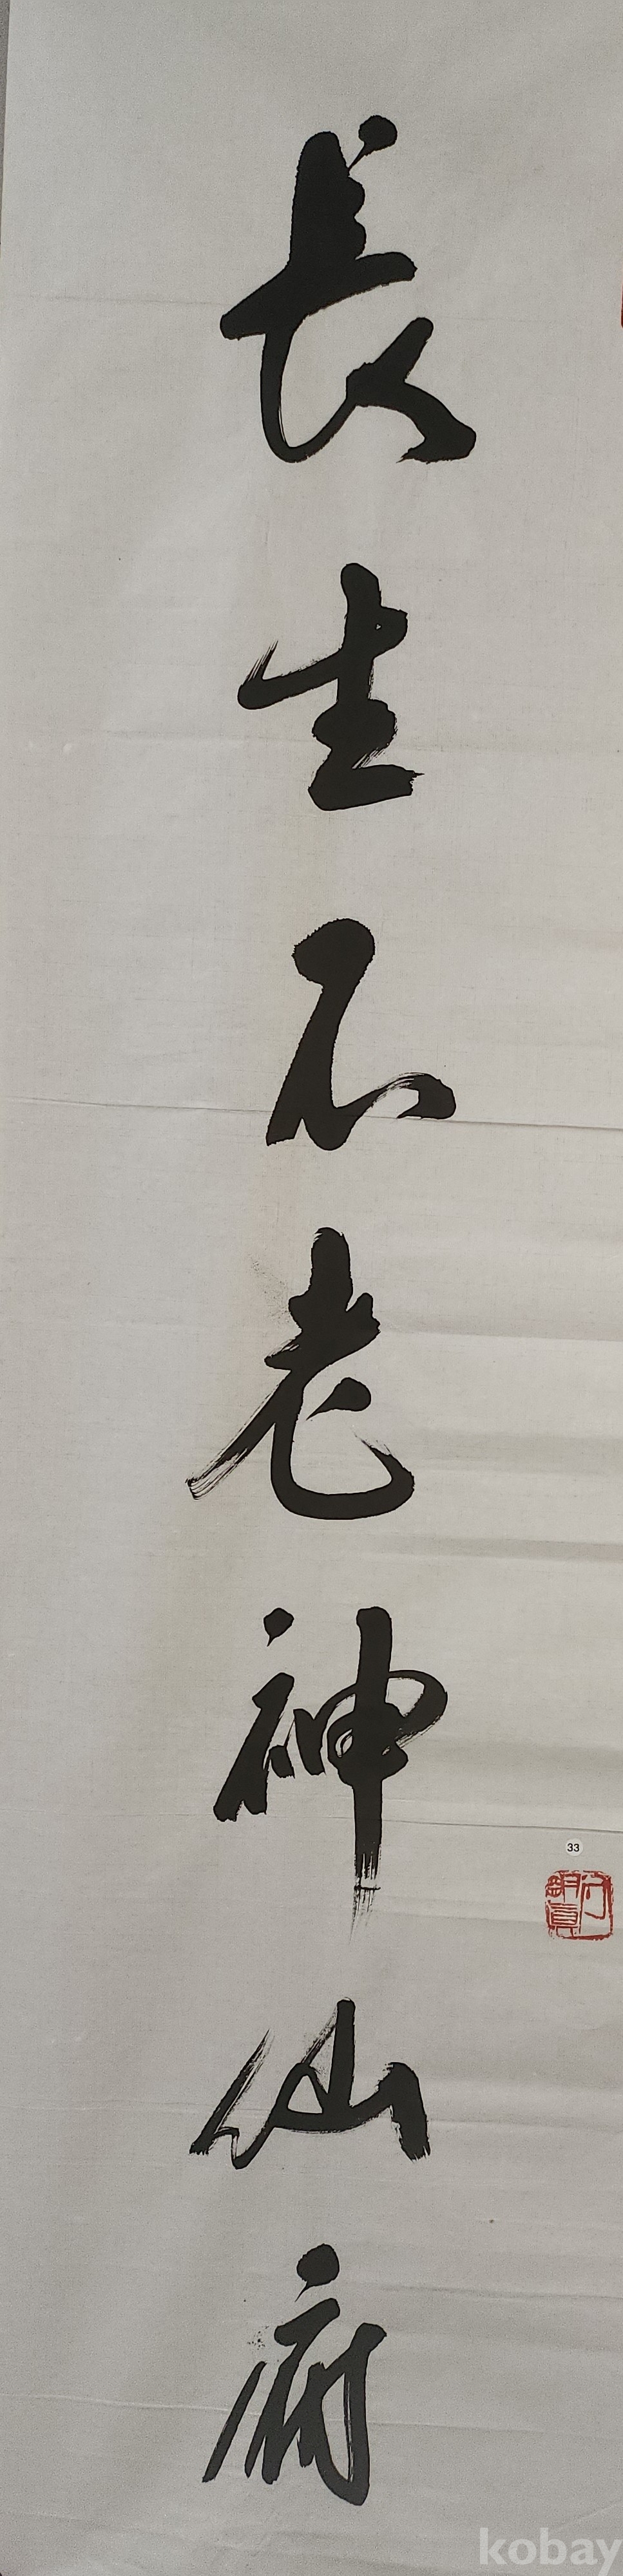 長生不老神仙府
33
kobay